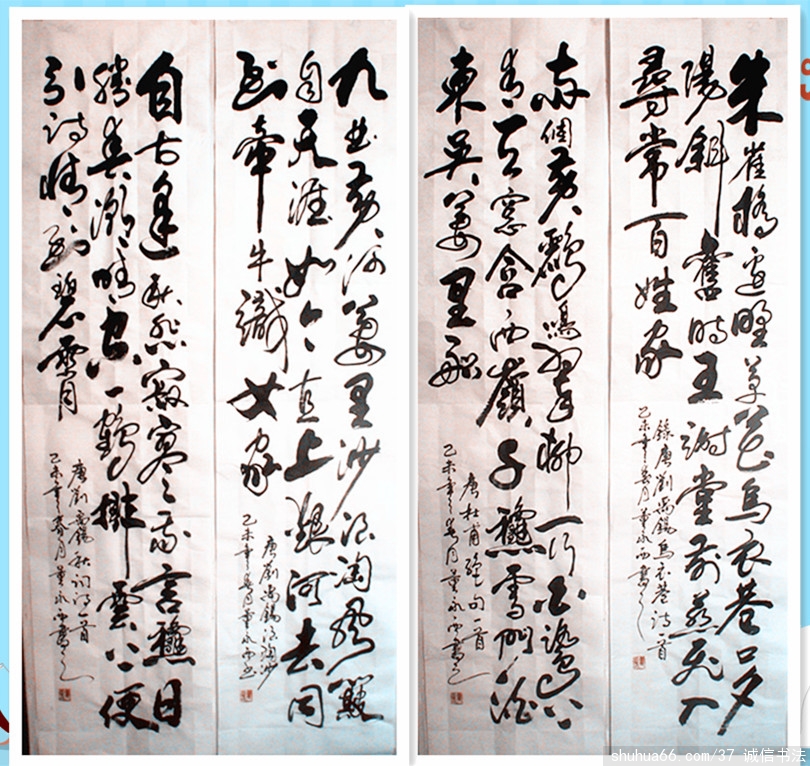 朱雀橋邊野草花烏衣巷口夕
陽斜舊時王謝堂前燕飛入
尋常百姓家
錄唐劉禹錫烏衣巷詩一首
乙未年春月董永西書
两個黃鸝鳴翠柳一行白鷺上
青天窓含西嶺千穐雪門泊
東吳萬里船
唐杜甫絕句一首
乙未年春月董永西書
九曲黃河萬里沙浪淘風簸
自天涯如今直上銀河去同
到牽牛織女家
唐劉禹錫浪淘沙
乙未年春月董永西書
自古逢秋悲寂寥我言穐日
勝春潮晴空一鶴排雲上便
引詩情到碧霄
唐劉禹錫秋詞詩一首
乙未年春月董永西書
shuhua66.com/37 诚信书法